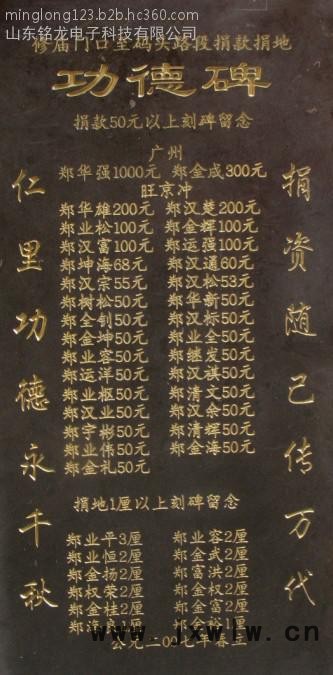 minglong123.b2b.hc360.com
山东铭龙电子科技有限公司
修庙门口至码头路段捐款捐地
功德碑
捐款50元以上刻碑留念
广州
郑华强1000元 郑金成300元
旺京冲
郑华雄200元 郑汉楚200元
郑业松100元 郑金辉100元
郑汉富100元 郑运强100元
郑坤海68元 郑汉通60元
郑汉宗55元 郑汉松53元
郑树松50元 郑华新50元
郑全钊50元 郑汉标50元
郑金坤50元 郑业全50元
郑业容50元 郑继发50元
郑运洋50元 郑汉祺50元
郑业枢50元 郑清文50元
郑汉业50元 郑汉余50元
郑宇彬50元 郑清辉50元
郑业伟50元 郑金海50元
郑金礼50元
捐地1厘以上刻碑留念
郑业平3厘 郑业容2厘
郑业恒2厘 郑金武2厘
郑金扬2厘 郑富洪2厘
郑权荣2厘 郑金权2厘
郑金桂2厘 郑金富2厘
1厘 2厘
公元二00七年春立
仁里功德永千秋
捐资随己传万代
www.jxwlw.cn